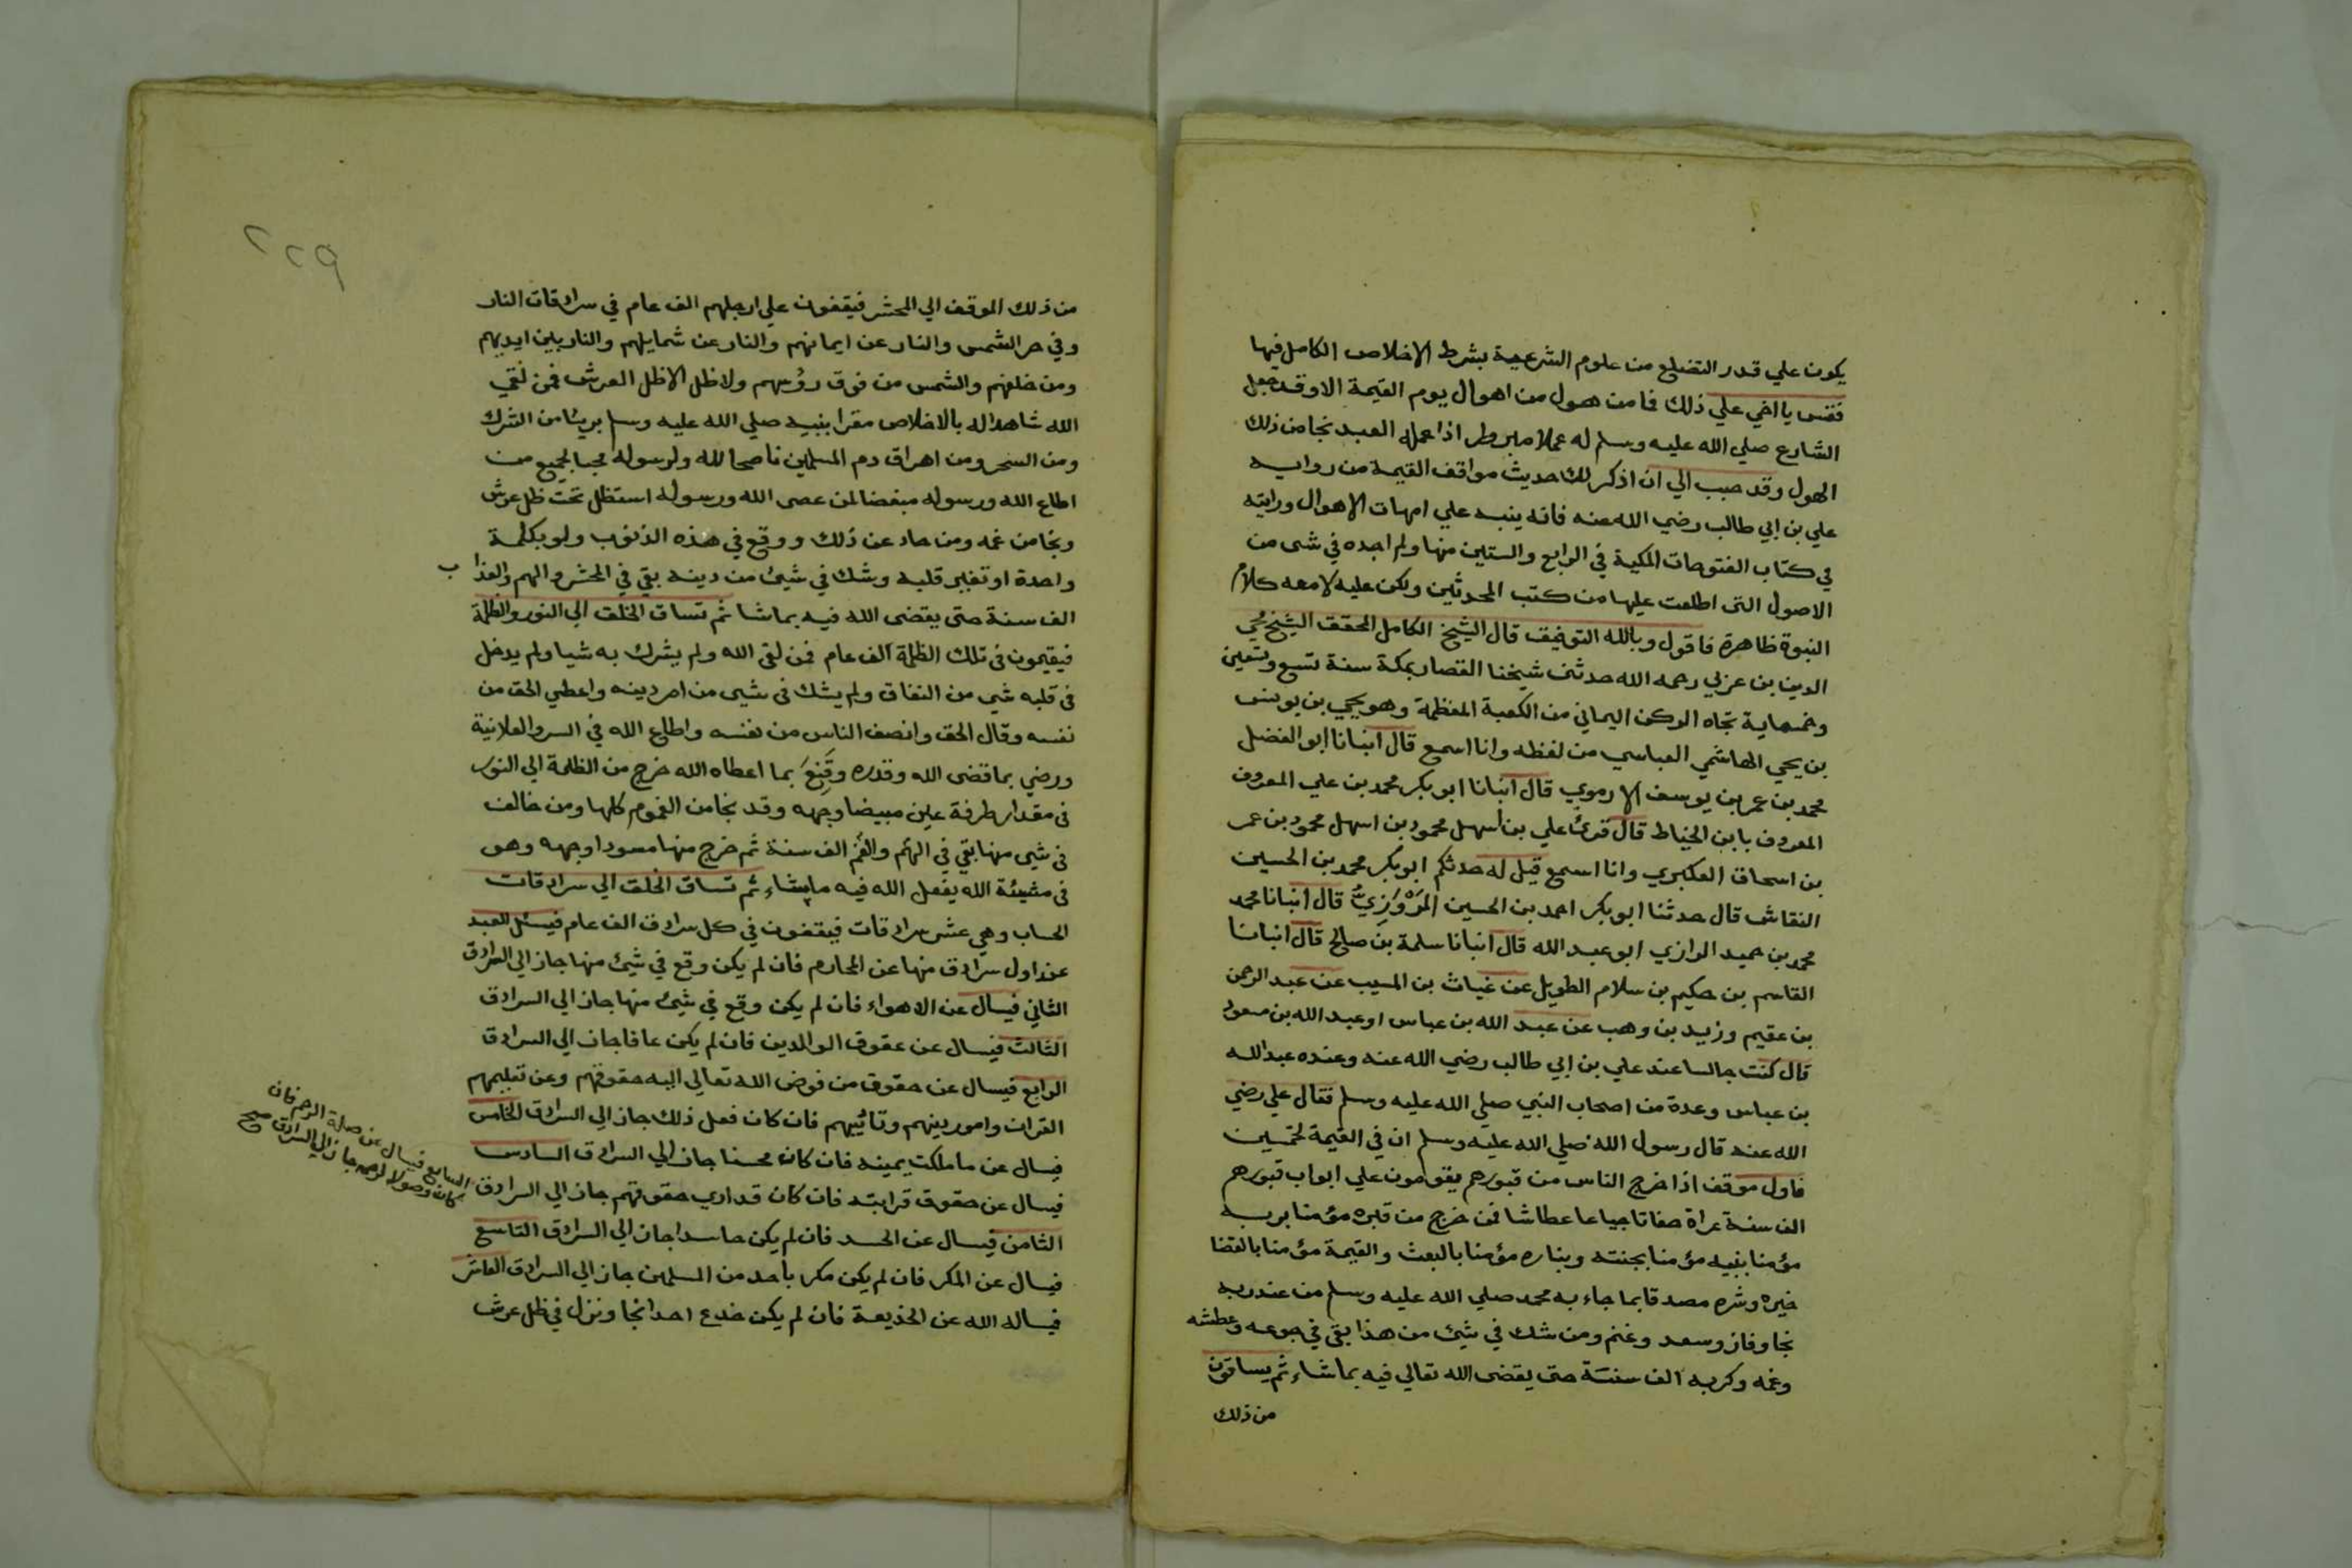 يكون علي قدر التضلع من علوم الشرعية بشرط الاخلاص الكامل فيها
فقس يا اخي علي ذلك فما من هول من اهوال يوم القيمة الا وقد جعل
الشارع صلي الله عليه وسلم له عملا مبروطر اذا عمله العبد نجا من ذلك
الهول وقد حبب الي ان اذكر لك حديث مواقف القيمة من رواية
علي بن ابي طالب رضي الله عنه فانه ينبه علي امهات الاهوال ورايته
في كتاب الفتوحات المكية في الرابع والستين منها ولم اجده في شى من
الاصول التى اطلعت عليها من كتب المحدثين ولكن عليه لامعه كلام
النبوة ظاهرة فاقول وبالله التوفيق قال الشيخ الكامل المحقق الشيخ محي
الدين بن عربي رحمه الله حدثنى شيخنا القصار بمكة سنة تسع وتسعين
وخمسماية تجاه الركن اليماني من الكعبة المعظمة وهو يحيي بن يونس
بن يحي الهاشمي العباسي من لفظه وانا اسمع قال انبانا ابو الفضل
محمد بن عمر بن يوسف الارموي قال انبانا ابو بكر محمد بن علي المعروف
المعروف بابن الخياط قال قرئ علي بن اسهل محمود بن اسهل محمود بن عمر
بن اسحاق العكبري وانا اسمع قيل له حدثكم ابو بكر محمد بن الحسين
النقاش قال حدثنا ابو بكر احمد بن الحسين المَرْوَازِيُّ قال انبانا محمد
محمد بن حميد الرازي ابو عبد الله قال انبانا سلمة بن صالح قال انبانا
القاسم بن حكيم بن سلام الطويل عن غياث بن المسيب عن عبد الرحمن
بن عقيم وزيد بن وهب عن عبد الله بن عباس او عبد الله بن مسعود
قال كنت جالسا عند علي بن ابي طالب رضي الله عنه وعنده عبد الله
بن عباس وعدة من اصحاب النبي صلي الله عليه وسلم فقال علي رضي
الله عنه قال رسول الله صلي الله عليه وسلم ان في القيمة لخمسين
فاول موقف اذا خرج الناس من قبورهم يقومون علي ابواب قبورهم
الف سنة عراة حفاتا جياعا عطاشا فمن خرج من قبره مؤمنا بربه
مؤمنا بنبيه مؤمنا بجنته وبناره مؤمنا بالبعث والقيمة مؤمنا بالقضا
خيره وشره مصدقا بما جاء به محمد صلي الله عليه وسلم من عند ربه
نجا وفاز وسعد وغنم ومن شك في شيئ من هذا بقى في جوعه وعطشه
وغمه وكربه الف سنة حتى يقضى الله تعالي فيه بما شاء ثم يساقون
من ذلك
٢٢٩
من ذلك الموقف الي المحشر فيقفون علي ارجلهم الف عام في سرادقات النار
وفي حر الشمس والنار عن ايمانهم والنار عن شمايلهم والنار بين ايديهم
ومن خلفهم والشمس من فوق رؤسهم ولا ظل الا ظل العرش فمن لقي
الله شاهدا له بالاخلاص مقرا بنبيه صلي الله عليه وسلم بريئا من الشرك
ومن السحر ومن اهراق دم المسلمين ناصحا لله ولرسوله محبا لجميع من
اطاع الله ورسوله مبغضا لمن عصى الله ورسوله استظل تحت ظل عرش
ونجا من غمه ومن حاد عن ذلك ووقع في هذه الذنوب ولو بكلمة
واحدة او تغير قلبه وشك في شيئ من دينه بقي في المحشر والهم والعذاب
الف سنة حتى يقضى الله فيه بما شا ثم تساق الخلق الي النور والظلمة
فيقيمون فى تلك الظلمة الف عام فمن لقى الله ولم يشرك به شيا ولم يدخل
فى قلبه شي من النفاق ولم يشك فى شي من امر دينه واعطي الحق من
نفسه وقال الحق وانصف الناس من نفسه واطاع الله في السر والعلانية
ورضي بما قضى الله وقدره وقَنِعَ بما اعطاه الله خرج من الظلمة الي النور
فى مقدار طرفة عين مبيضا وجهه وقد نجا من الغموم كلها ومن خالف
فى شي منها بقي في الهم والغم الف سنة ثم خرج منها مسودا وجهه وهو
فى مشيئة الله يفعل الله فيه ما يشاء ثم تساق الخلق الي سرادقات
الحساب وهي عشر سرادقات فيقفون في كل سرادق الف عام فيسئل العبد
عند اول سرادق منها عن المحارم فان لم يكن وقع في شيئ منها جاز الي السرادق
الثاني فيسال عن الاهواء فان لم يكن وقع في شيئ منها جاز الي السرادق
الثالث فيسال عن عقوق الوالدين فان لم يكن عاقا جاز الي السرادق
الرابع فيسال عن حقوق من فوض الله تعالي اليه حقوقهم وعن تعليمهم
القران وامور دينهم وتاديبهم فان كان فعل ذلك جاز الي السرادق الخامس
فيسال عن ما ملكت يمينه فان كان محسنا جاز الي السرادق السادس
فيسال عن حقوق قرابته فان كان قد ادي حقوقهم جاز الي السرادق
السابع فيسال عن صلة الرحم فان
كان وصولا لرحمه جاز الي السرادق صح
الثامن فيسال عن الحسد فان لم يكن حاسدا جاز الي السرادق التاسع
فيسال عن المكر فان لم يكن مكر باحد من المسلمين جاز الي السرادق العاشر
فيساله الله عن الخديعة فان لم يكن خدع احدا نجا ونزل في ظل عرش